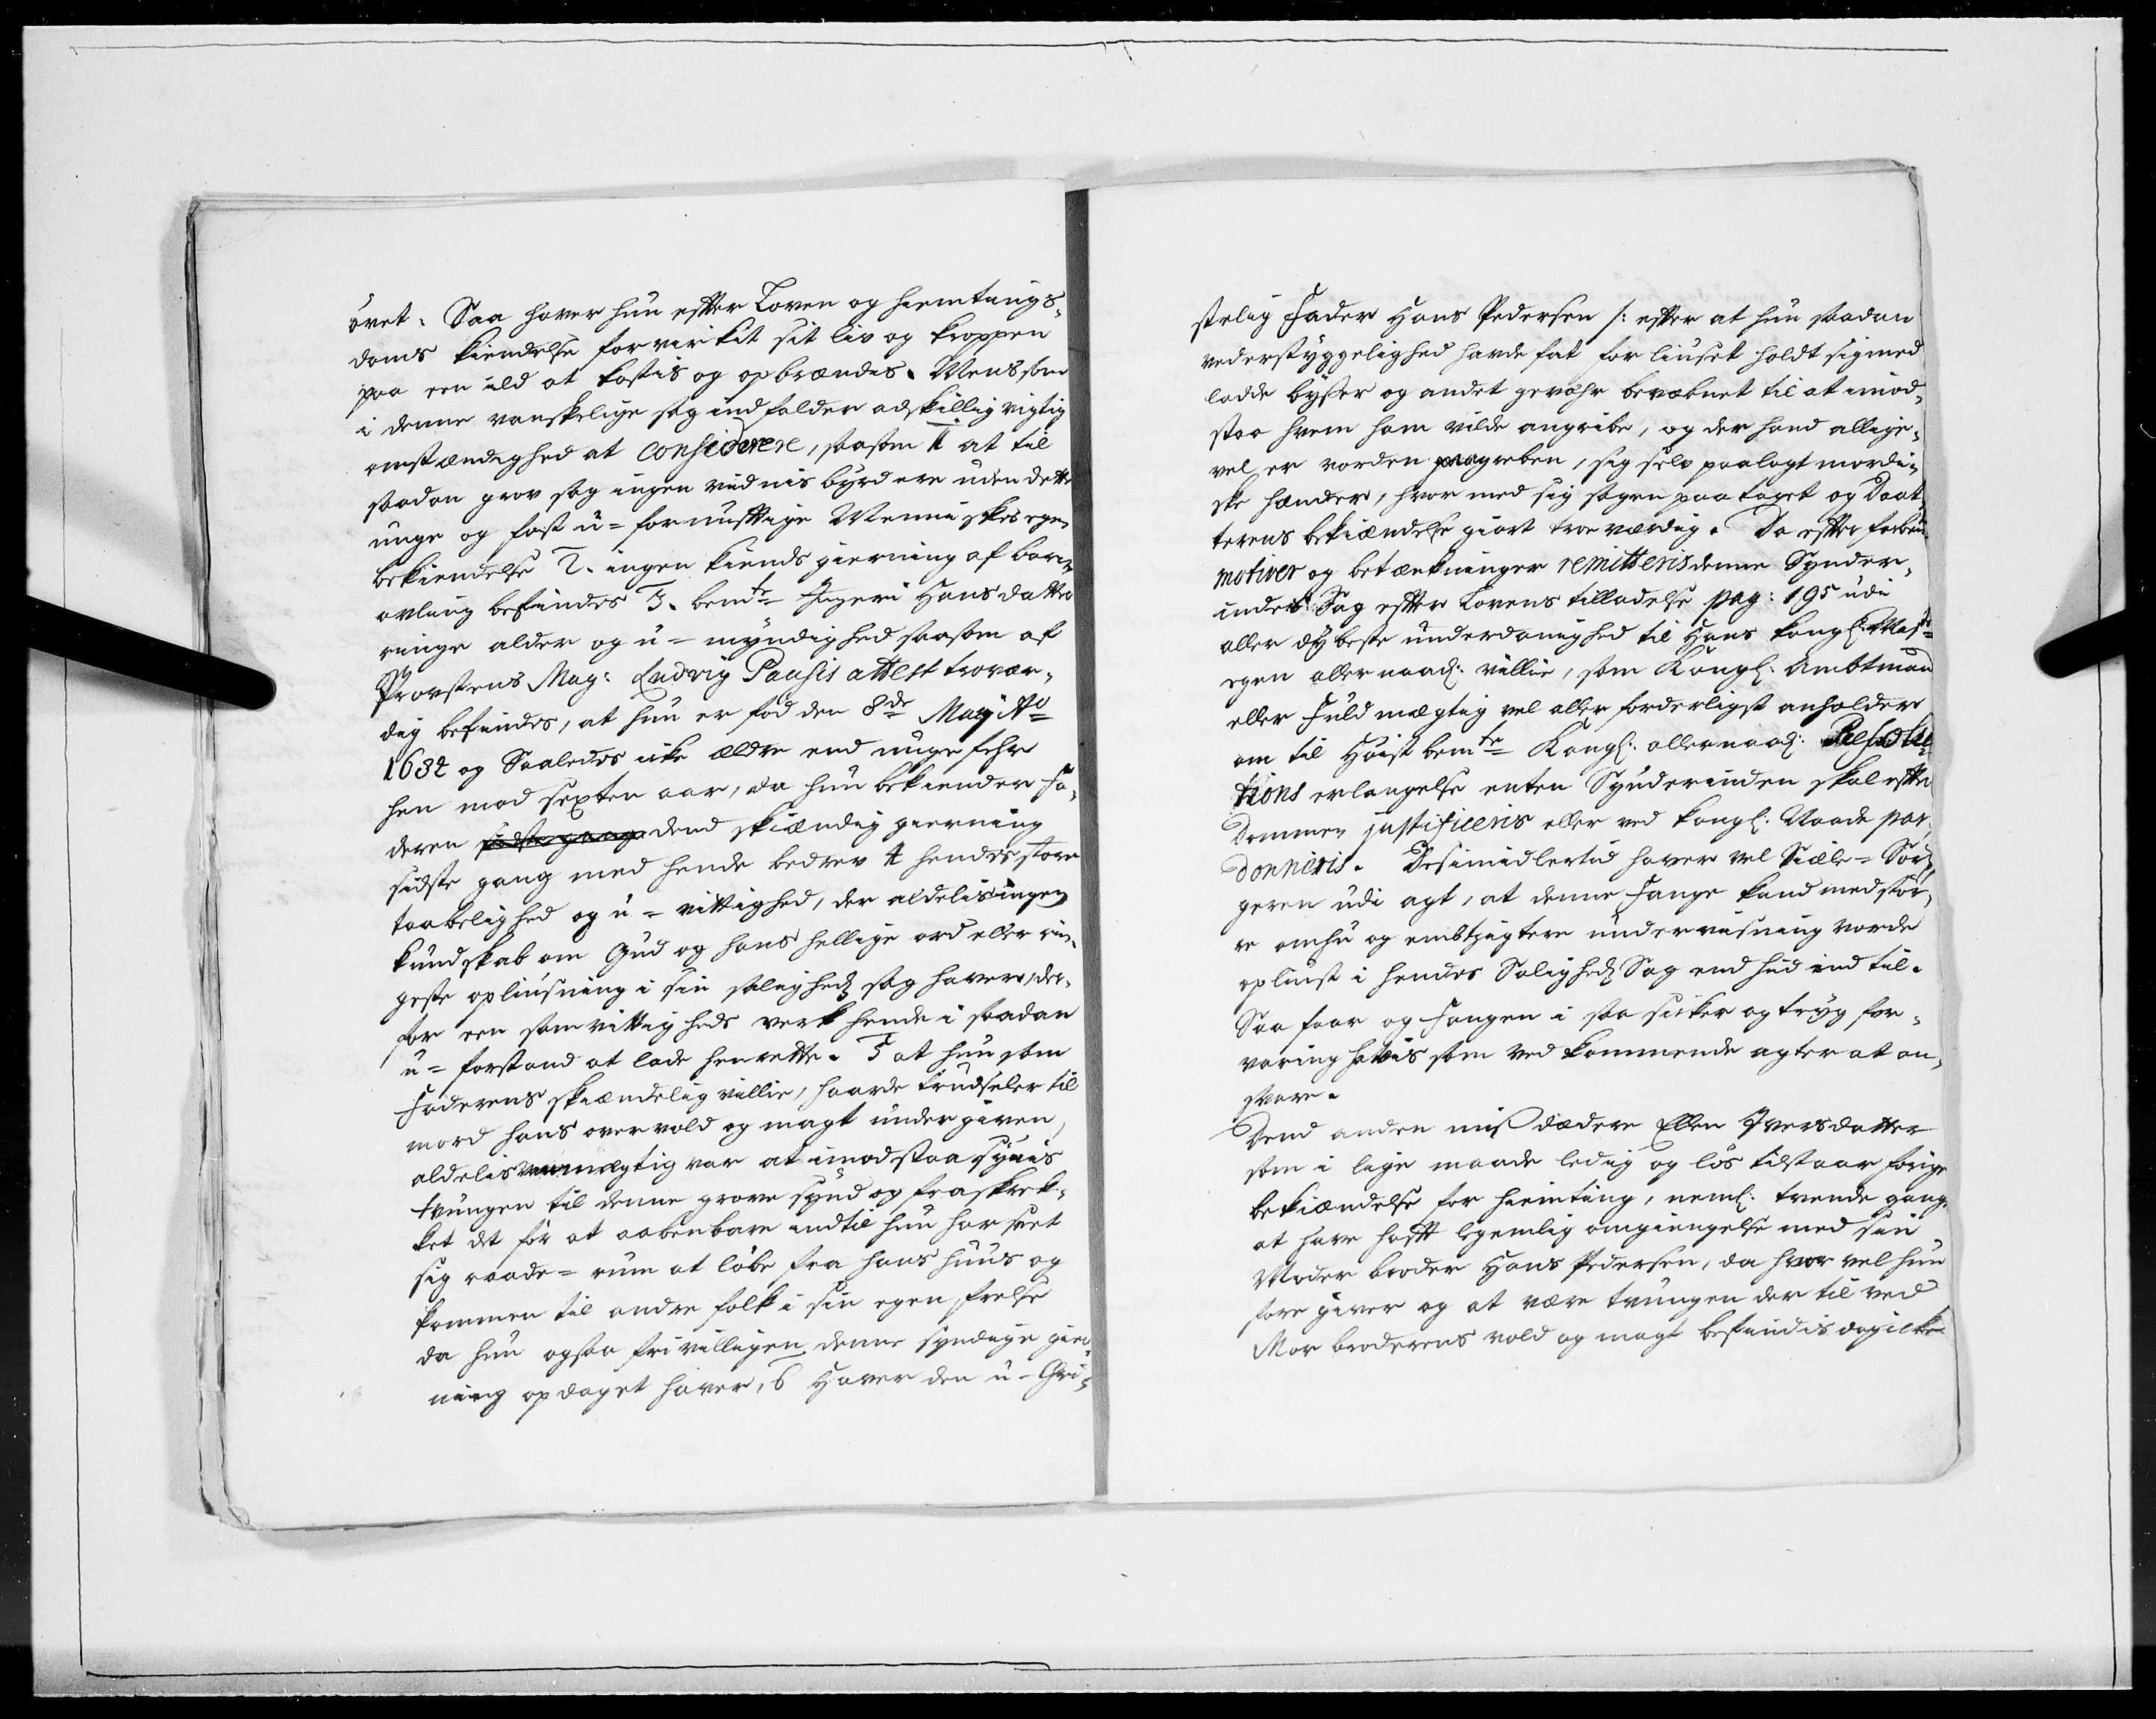 övet. Saa haver hun efter Loven og hiemtings¬
doms kiendelse forvirkit sit liv og kroppen
paa een ild at kastis og opbrændes. Mens som
i denne vanskelige sag indfalder adskillig vigtig
omstændighed at considerere, saasom 1 at til
saadan grov sag ingen vidnisbyrd ere uden dette
unge og fast u=fornufftige Menniskes egen
bekiendelse 2. ingen kiends gierning af barn
avling befindes 3. bemte Ingeri Hansdatters
ringe alder og u=myndighed saasom af
Provstens Mag: Ludvig Pausis attest trovær¬
dig befindes, at hun er fød den 8de Maij Ao
1682 og Saaledes icke ældre end ungefehr
hen mod sexten aar, da hun bekiender Fa¬
deren sidste gang dend skiændig gierning
sidste gang med hende bedrev 4 hendes store
taabelighed og u=vittighed, der aldelis ingen
kundskab om Gud og hans hellige ord eller rin¬
geste opliusning i sin saligheds sag haver, der¬
for een samvittigheds verk hende i saadan
u=forstand at lade henrette. 5 at hun som
Faderens skiændelig villie, haarde trudseler til
mord hans overvold og magt undergiven,
aldelis uumægtig var at imodstaa synis
tvungen til denne grove synd og fraskrek¬
ket det før at aabenbare indtil hun har seet
sig raade=rum at løbe fra hans huus og
kommen til andre folk i sin egen frelse
da hun ogsaa frivilligen denne syndige gier¬
ning opdaget haver, 6 Haver den u-Chri¬
stelig Fader Hans Pedersen /: efter at hun saadan
vederstyggelighed havde fat for liuset holdt sig med
ladde bysser og andet gevæhr bevæbnet til at imod¬
staa hvem ham vilde angribe, og der hand allige¬
vel er vorden paagreben, sig selv paalagt mordi¬
ske hænder, hvor med sig sagen paataget og Daat¬
terens bekiændelse giort troeværdig. Da efter forbem
motiver og betænkninger remitteris denne Synder¬
indes Sag efter Lovens tilladelse pag: 195 udi
aller dybeste underdanighed til Hans kongl: Mayts
egen allernaad: villie, som Kongl. Ambtmand
eller Fuldmægtig vel aller forderligst anholder
om til Høist bemte Kongl: allernaad: Resolu¬
tions erlangelse enten Synderinden skal efter
Dommen justificeris eller ved kongl. Naade par¬
donneris. Desimidlertid haver vel Siæle=Sør¬
geren udi agt, at denne Fange kand med stør¬
re omhu og embtzigtere undervisning vorde
opliust i hendes Saligheds Sag end hid ind til.
Saa faar og Fangen i saa sicker og tryg for¬
varing hafvis som vedkommende agter at an¬
svare.
Dend anden misdædere Ellen Iversdatter
som i lige maade ledig og løs tilstaar forige
bekiændelse for hiemting, neml. trende gang
at have hafft legemlig omgiengelse med sin
Moder broder Hans Pedersen, da hvor vel hun
foregiver og at være tvungen der til ved
Mor broderens vold og magt befindis dog icke